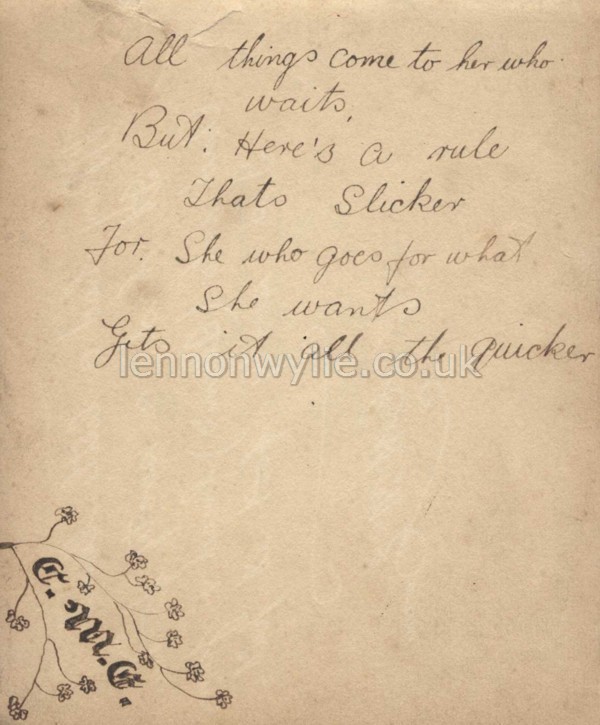 All things come to her who
waits,
But. Here's a rule
Thats Slicker
For. She who goes for what
She wants
Gets it all the quicker
lennonwylie.co.uk